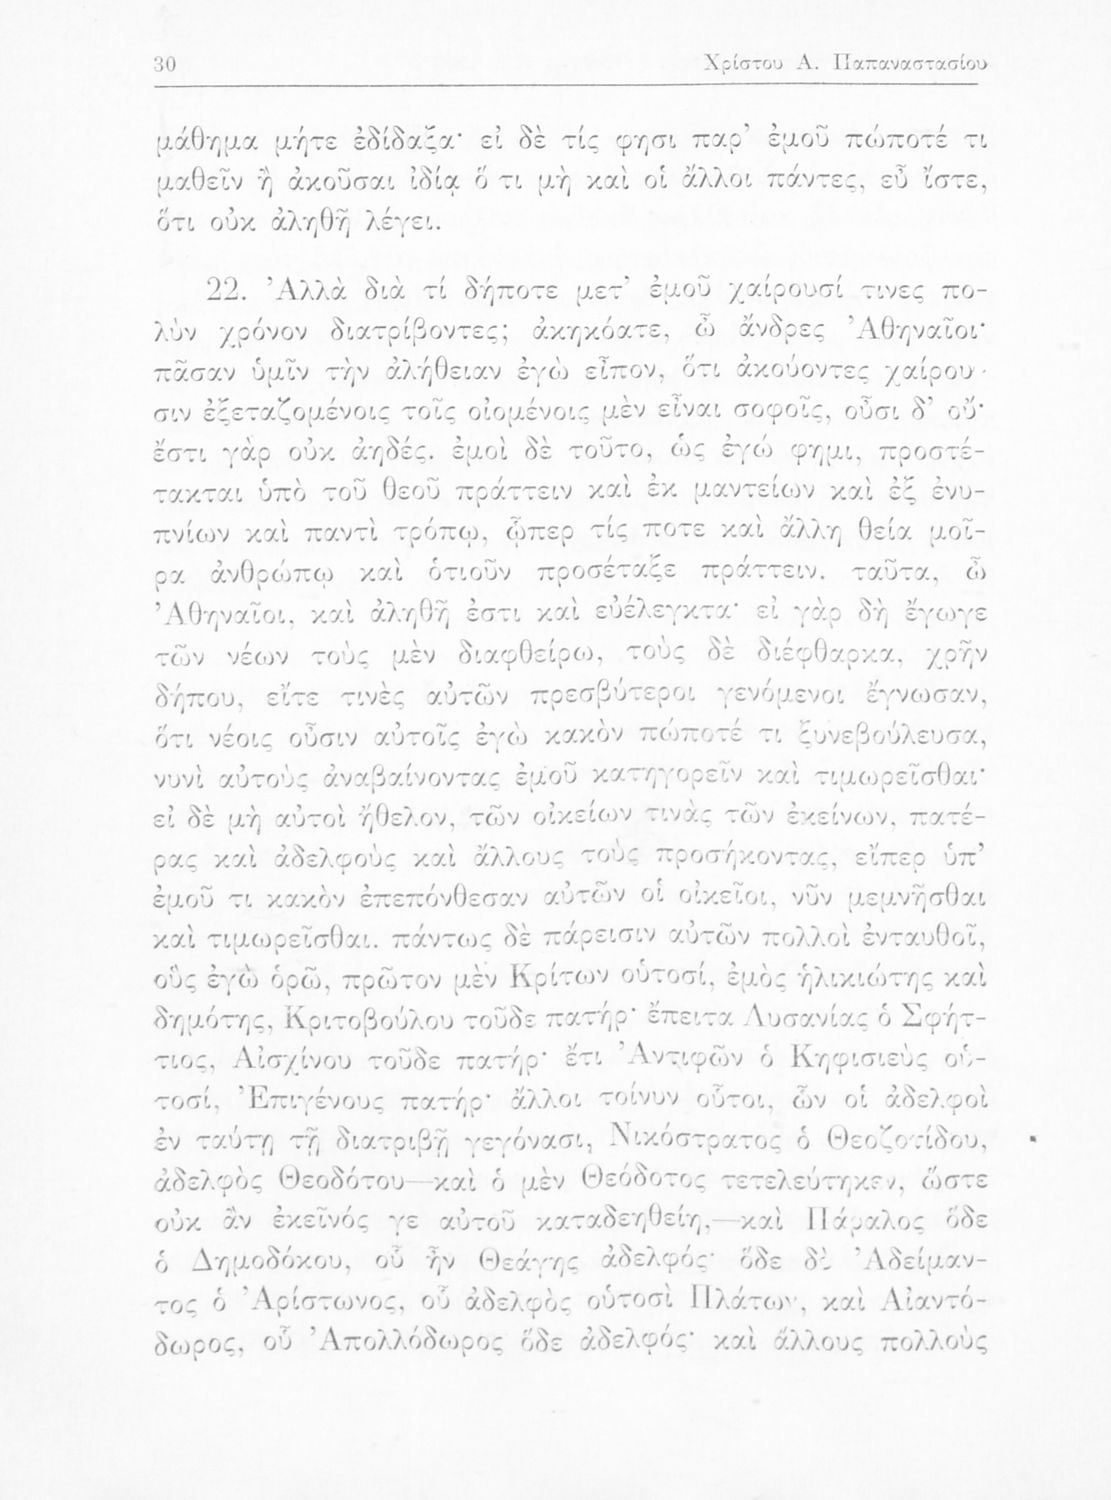 30 Χρίστου Α. Παπαναστασίου
μάθημα μήτε ἐδίδαξα· εἰ δὲ τίς φησι παρ’ ἐμοῦ πώποτέ τι
μαθεῖν ἢ ἀκοῦσαι ἰδίᾳ ὅ τι μὴ καὶ οἱ ἄλλοι πάντες, εὖ ἴστε,
ὅτι οὐκ ἀληθῆ λέγει.
22. Ἀλλὰ διὰ τί δήποτε μετ’ ἐμοῦ χαίρουσί τινες πο-
λὺν χρόνον διατρίβοντες; ἀκηκόατε, ὦ ἄνδρες Ἀθηναῖοι·
πᾶσαν ὑμῖν τὴν ἀλήθειαν ἐγὼ εἶπον, ὅτι ἀκούοντες χαίρου-
σιν ἐξεταζομένοις τοῖς οἰομένοις μὲν εἶναι σοφοῖς, οὖσι δ’ οὔ·
ἔστι γὰρ οὐκ ἀηδές. ἐμοὶ δὲ τοῦτο, ὡς ἐγώ φημι, προστέ-
τακται ὑπὸ τοῦ θεοῦ πράττειν καὶ ἐκ μαντείων καὶ ἐξ ἐνυ-
πνίων καὶ παντὶ τρόπῳ, ᾧπερ τίς ποτε καὶ ἄλλη θεία μοῖ-
ρα ἀνθρώπῳ καὶ ὁτιοῦν προσέταξε πράττειν. ταῦτα, ὦ
Ἀθηναῖοι, καὶ ἀληθῆ ἐστι καὶ εὐέλεγκτα· εἰ γὰρ δὴ ἔγωγε
τῶν νέων τοὺς μὲν διαφθείρω, τοὺς δὲ διέφθαρκα, χρῆν
δήπου, εἴτε τινὲς αὐτῶν πρεσβύτεροι γενόμενοι ἔγνωσαν,
ὅτι νέοις οὖσιν αὐτοῖς ἐγὼ κακὸν πώποτέ τι ξυνεβούλευσα,
νυνὶ αὐτοὺς ἀναβαίνοντας ἐμοῦ κατηγορεῖν καὶ τιμωρεῖσθαι·
εἰ δὲ μὴ αὐτοὶ ἤθελον, τῶν οἰκείων τινὰς τῶν ἐκείνων, πατέ-
ρας καὶ ἀδελφοὺς καὶ ἄλλους τοὺς προσήκοντας, εἴπερ ὑπ’
ἐμοῦ τι κακὸν ἐπεπόνθεσαν αὐτῶν οἱ οἰκεῖοι, νῦν μεμνῆσθαι
καὶ τιμωρεῖσθαι. πάντως δὲ πάρεισιν αὐτῶν πολλοὶ ἐνταυθοῖ,
οὓς ἐγὼ ὁρῶ, πρῶτον μὲν Κρίτων οὑτοσί, ἐμὸς ἡλικιώτης καὶ
δημότης, Κριτοβούλου τοῦδε πατήρ· ἔπειτα Λυσανίας ὁ Σφήτ-
τιος, Αἰσχίνου τοῦδε πατήρ· ἔτι Ἀντιφῶν ὁ Κηφισιεὺς οὑ-
τοσί, Ἐπιγένους πατήρ· ἄλλοι τοίνυν οὗτοι, ὧν οἱ ἀδελφοὶ
ἐν ταύτῃ τῇ διατριβῇ γεγόνασι, Νικόστρατος ὁ Θεοζοτίδου,
ἀδελφὸς Θεοδότου—καὶ ὁ μὲν Θεόδοτος τετελεύτηκεν, ὥστε
οὐκ ἂν ἐκεῖνός γε αὐτοῦ καταδεηθείη,—καὶ Πάραλος ὅδε
ὁ Δημοδόκου, οὗ ἦν Θεάγης ἀδελφός· ὅδε δὲ Ἀδείμαν-
τος ὁ Ἀρίστωνος, οὗ ἀδελφὸς οὑτοσὶ Πλάτων, καὶ Αἰαντό-
δωρος, οὗ Ἀπολλόδωρος ὅδε ἀδελφός· καὶ ἄλλους πολλοὺς